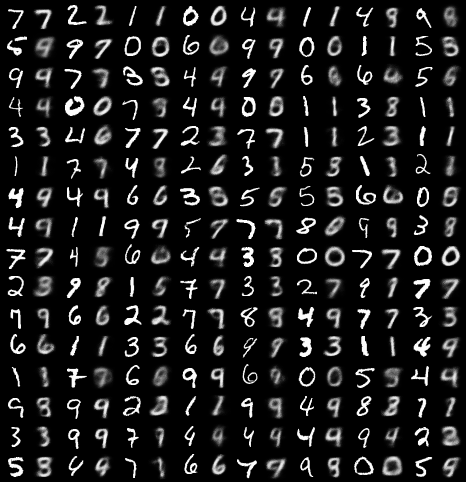 7 7 2 2 1 1 0 0 4 4 1 1 4 9 9 8
5 9 9 9 0 0 6 0 9 9 0 0 1 1 5 3
9 9 7 7 3 3 4 9 9 9 6 8 6 6 5 6
4 9 0 0 7 9 4 9 0 0 1 1 3 8 1 1
3 3 4 6 7 7 2 3 7 7 1 1 2 3 1 1
1 1 7 7 4 9 2 6 3 3 5 3 1 3 2 1
4 9 4 9 6 6 3 8 5 6 5 8 6 0 0 6
4 9 1 1 9 9 5 7 7 7 8 0 9 9 3 8
7 7 4 5 6 6 4 4 3 3 0 0 7 7 0 0
2 3 9 8 1 5 7 7 3 3 2 7 9 9 7 7
7 9 6 6 2 2 7 9 8 8 4 9 7 7 3 3
6 6 1 1 3 3 6 6 9 9 3 3 1 1 4 9
1 1 7 9 6 6 9 9 6 9 0 0 5 9 4 4
9 8 9 9 2 2 1 1 9 9 4 9 8 8 7 1
3 3 9 9 7 9 4 9 4 9 4 9 9 4 2 2
5 8 4 9 7 1 6 6 7 9 9 8 0 0 5 9